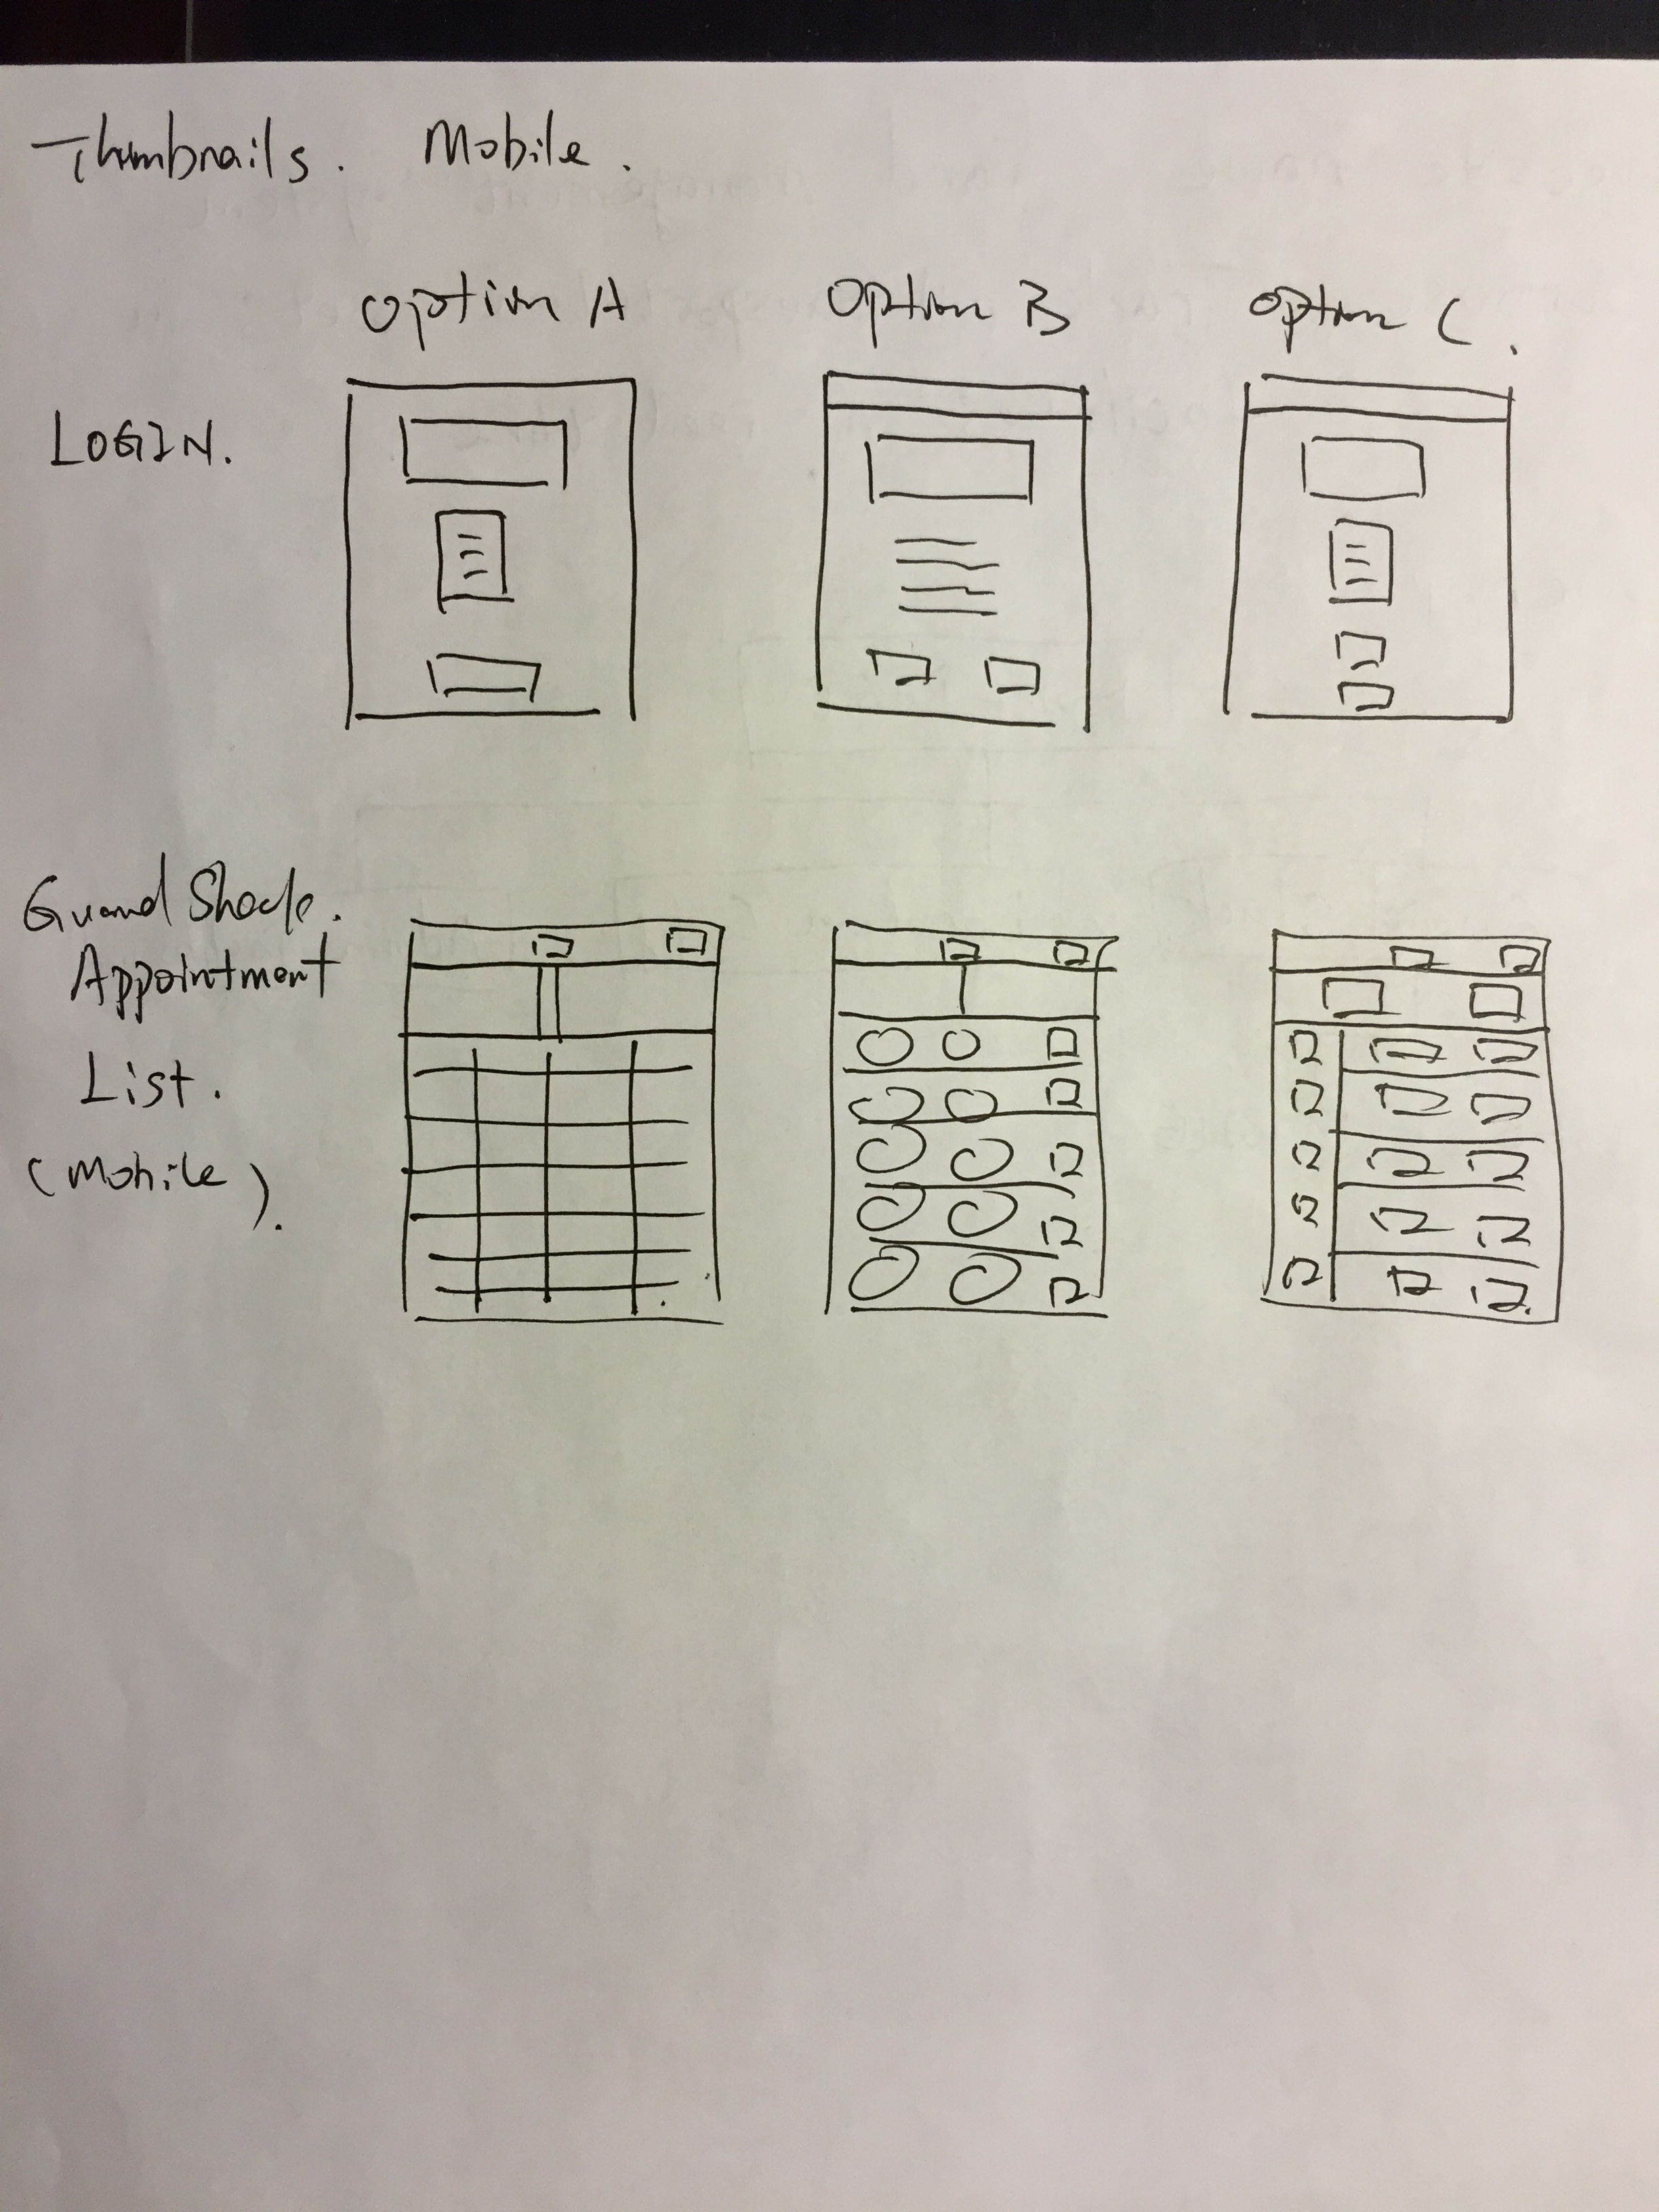 Thumbnails. Mobile.
Option A Option B Option C.
LOGIN.
Guard Shack.
Appointment
List.
(Mobile).